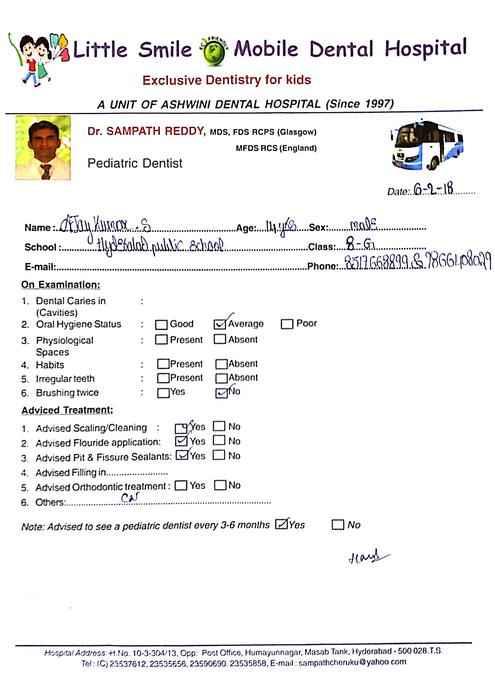 Little Smile Mobile Dental Hospital
ECO FRIENDLY
Exclusive Dentistry for kids
A UNIT OF ASHWINI DENTAL HOSPITAL (Since 1997)
Dr. SAMPATH REDDY, MDS, FDS RCPS (Glasgow)
MFDS RCS (England)
Pediatric Dentist
Date: 6-2-18
Name: Ajay Kumar .S Age: 14 yrs Sex: male
School : Hyderabad public school Class: 8-G
E-mail: Phone:
On Examination:
1. Dental Caries in :
(Cavities)
2. Oral Hygiene Status : Good Average Poor
3. Physiological : Present Absent
Spaces
4. Habits : Present Absent
5. Irregular teeth : Present Absent
6. Brushing twice : Yes No
Adviced Treatment:
1. Advised Scaling/Cleaning : Yes No
2. Advised Flouride application: Yes No
3. Advised Pit & Fissure Sealants: Yes No
4. Advised Filling in
5. Advised Orthodontic treatment : Yes No
6. Others:
Note: Advised to see a pediatric dentist every 3-6 months Yes No
Hospital Address: H.No. 10-3-304/13, Opp: Post Office, Humayunnagar, Masab Tank, Hyderabad - 500 028.T.S.
Tel : (C) 23537612, 23535656, 23590690. 23535858, E-mail : sampathcheruku@yahoo.com